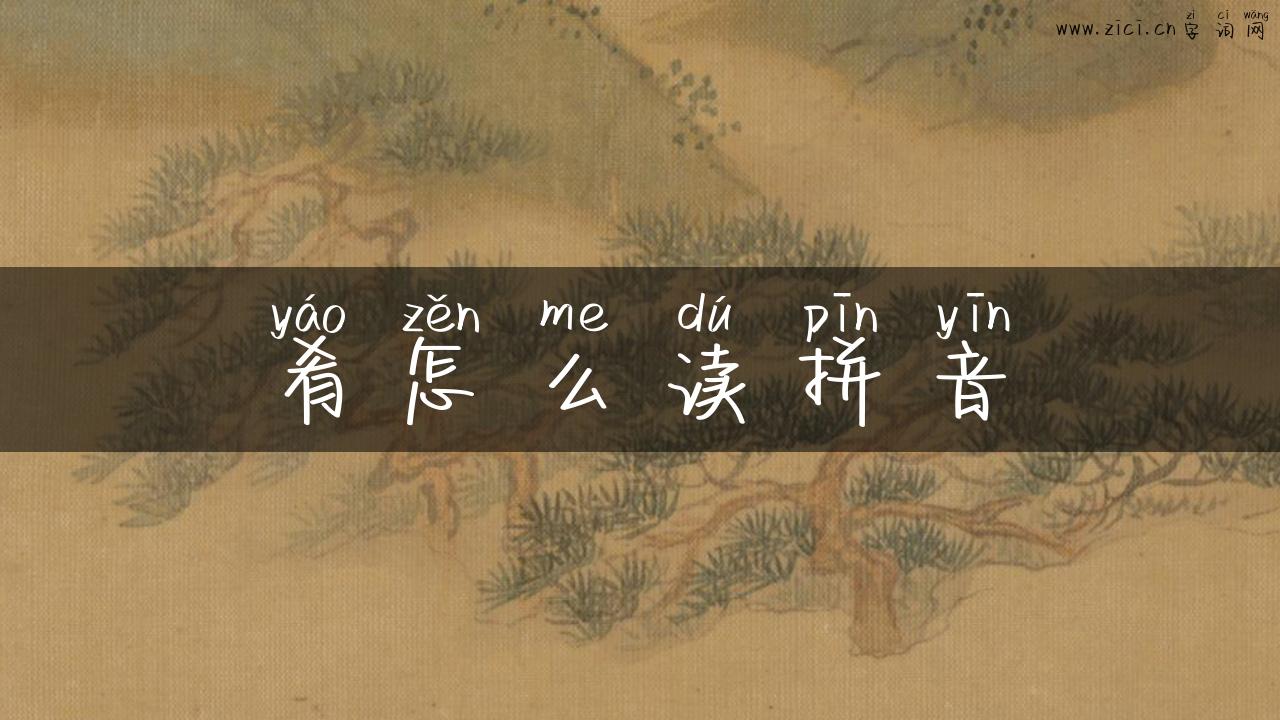 zì cí wǎng
www.zici.cn 字词网
yáo zěn me dú pīn yīn
肴怎么读拼音